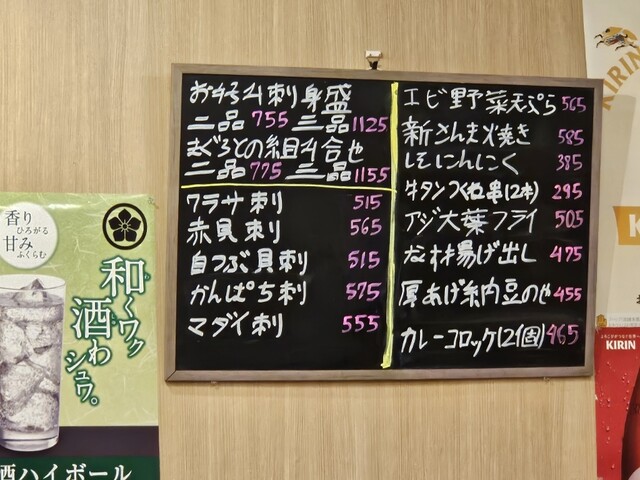 お好み刺身盛
二品755 三品1125
まぐろとの組み合せ
二品775 三品1155
ワラサ刺 515
赤貝刺 565
白つぶ貝刺 515
かんぱち刺 575
マダイ刺 555
エビ野菜天ぷら 565
新さんま火焼き 585
にんにく 385
牛タンつくね串(2本) 295
アジ大葉フライ 505
なす 揚げ出し 475
厚あげ納豆のせ 455
カレーコロッケ(2個) 465
香り
ひろがる
甘み
ふくらむ
和くワク
酒わ
シュワ。
酒ハイボール
KIRIN
KIRIN